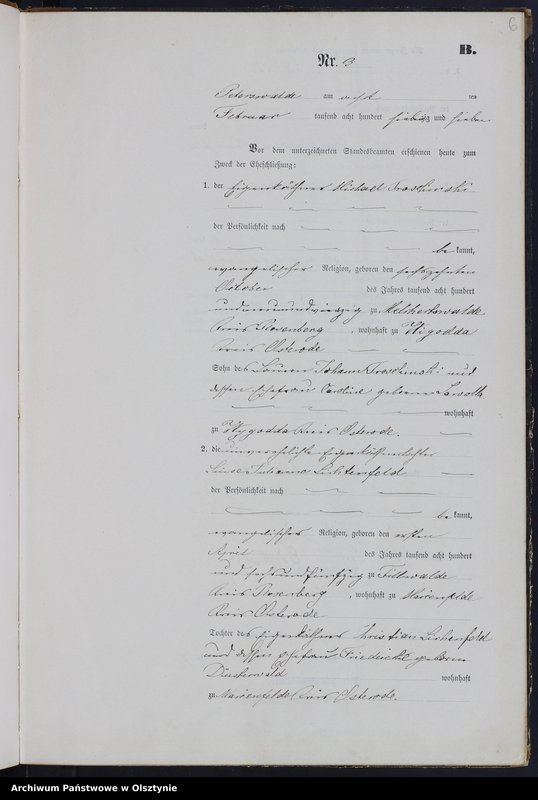 6
B.
Nr. 3
Peterswalde am acht ten
Februar tausend acht hundert siebenzig und sieben
Vor dem unterzeichneten Standesbeamten erschienen heute zum
Zweck der Eheschließung:
1. der Eigenkäthner Michael
der Persönlichkeit nach
be kannt,
evangelischer Religion, geboren den sechszehnten
October des Jahres tausend acht hundert
und neunundvierzig zu
Kreis Rosenberg, wohnhaft zu Wygodda
Kreis Osterode
Sohn des Johann und
dessen Ehefrau Caroline geborene
wohnhaft
zu Wygodda Kreis Osterode.
2. die unverehelichte Eigenkäthnertochter
Lichtenfeld
der Persönlichkeit nach
be kannt,
evangelischer Religion, geboren den ersten
April des Jahres tausend acht hundert
und sechsundfünfzig zu Tillwalde
Kreis Rosenberg, wohnhaft zu Marienfelde
Kreis Osterode
Tochter des Eigenkäthners Christian Lichtenfeld
und dessen Ehefrau Friedericke geborne
Düsterwald wohnhaft
zu Marienfelde Kreis Osterode.
Archiwum Państwowe w Olsztynie